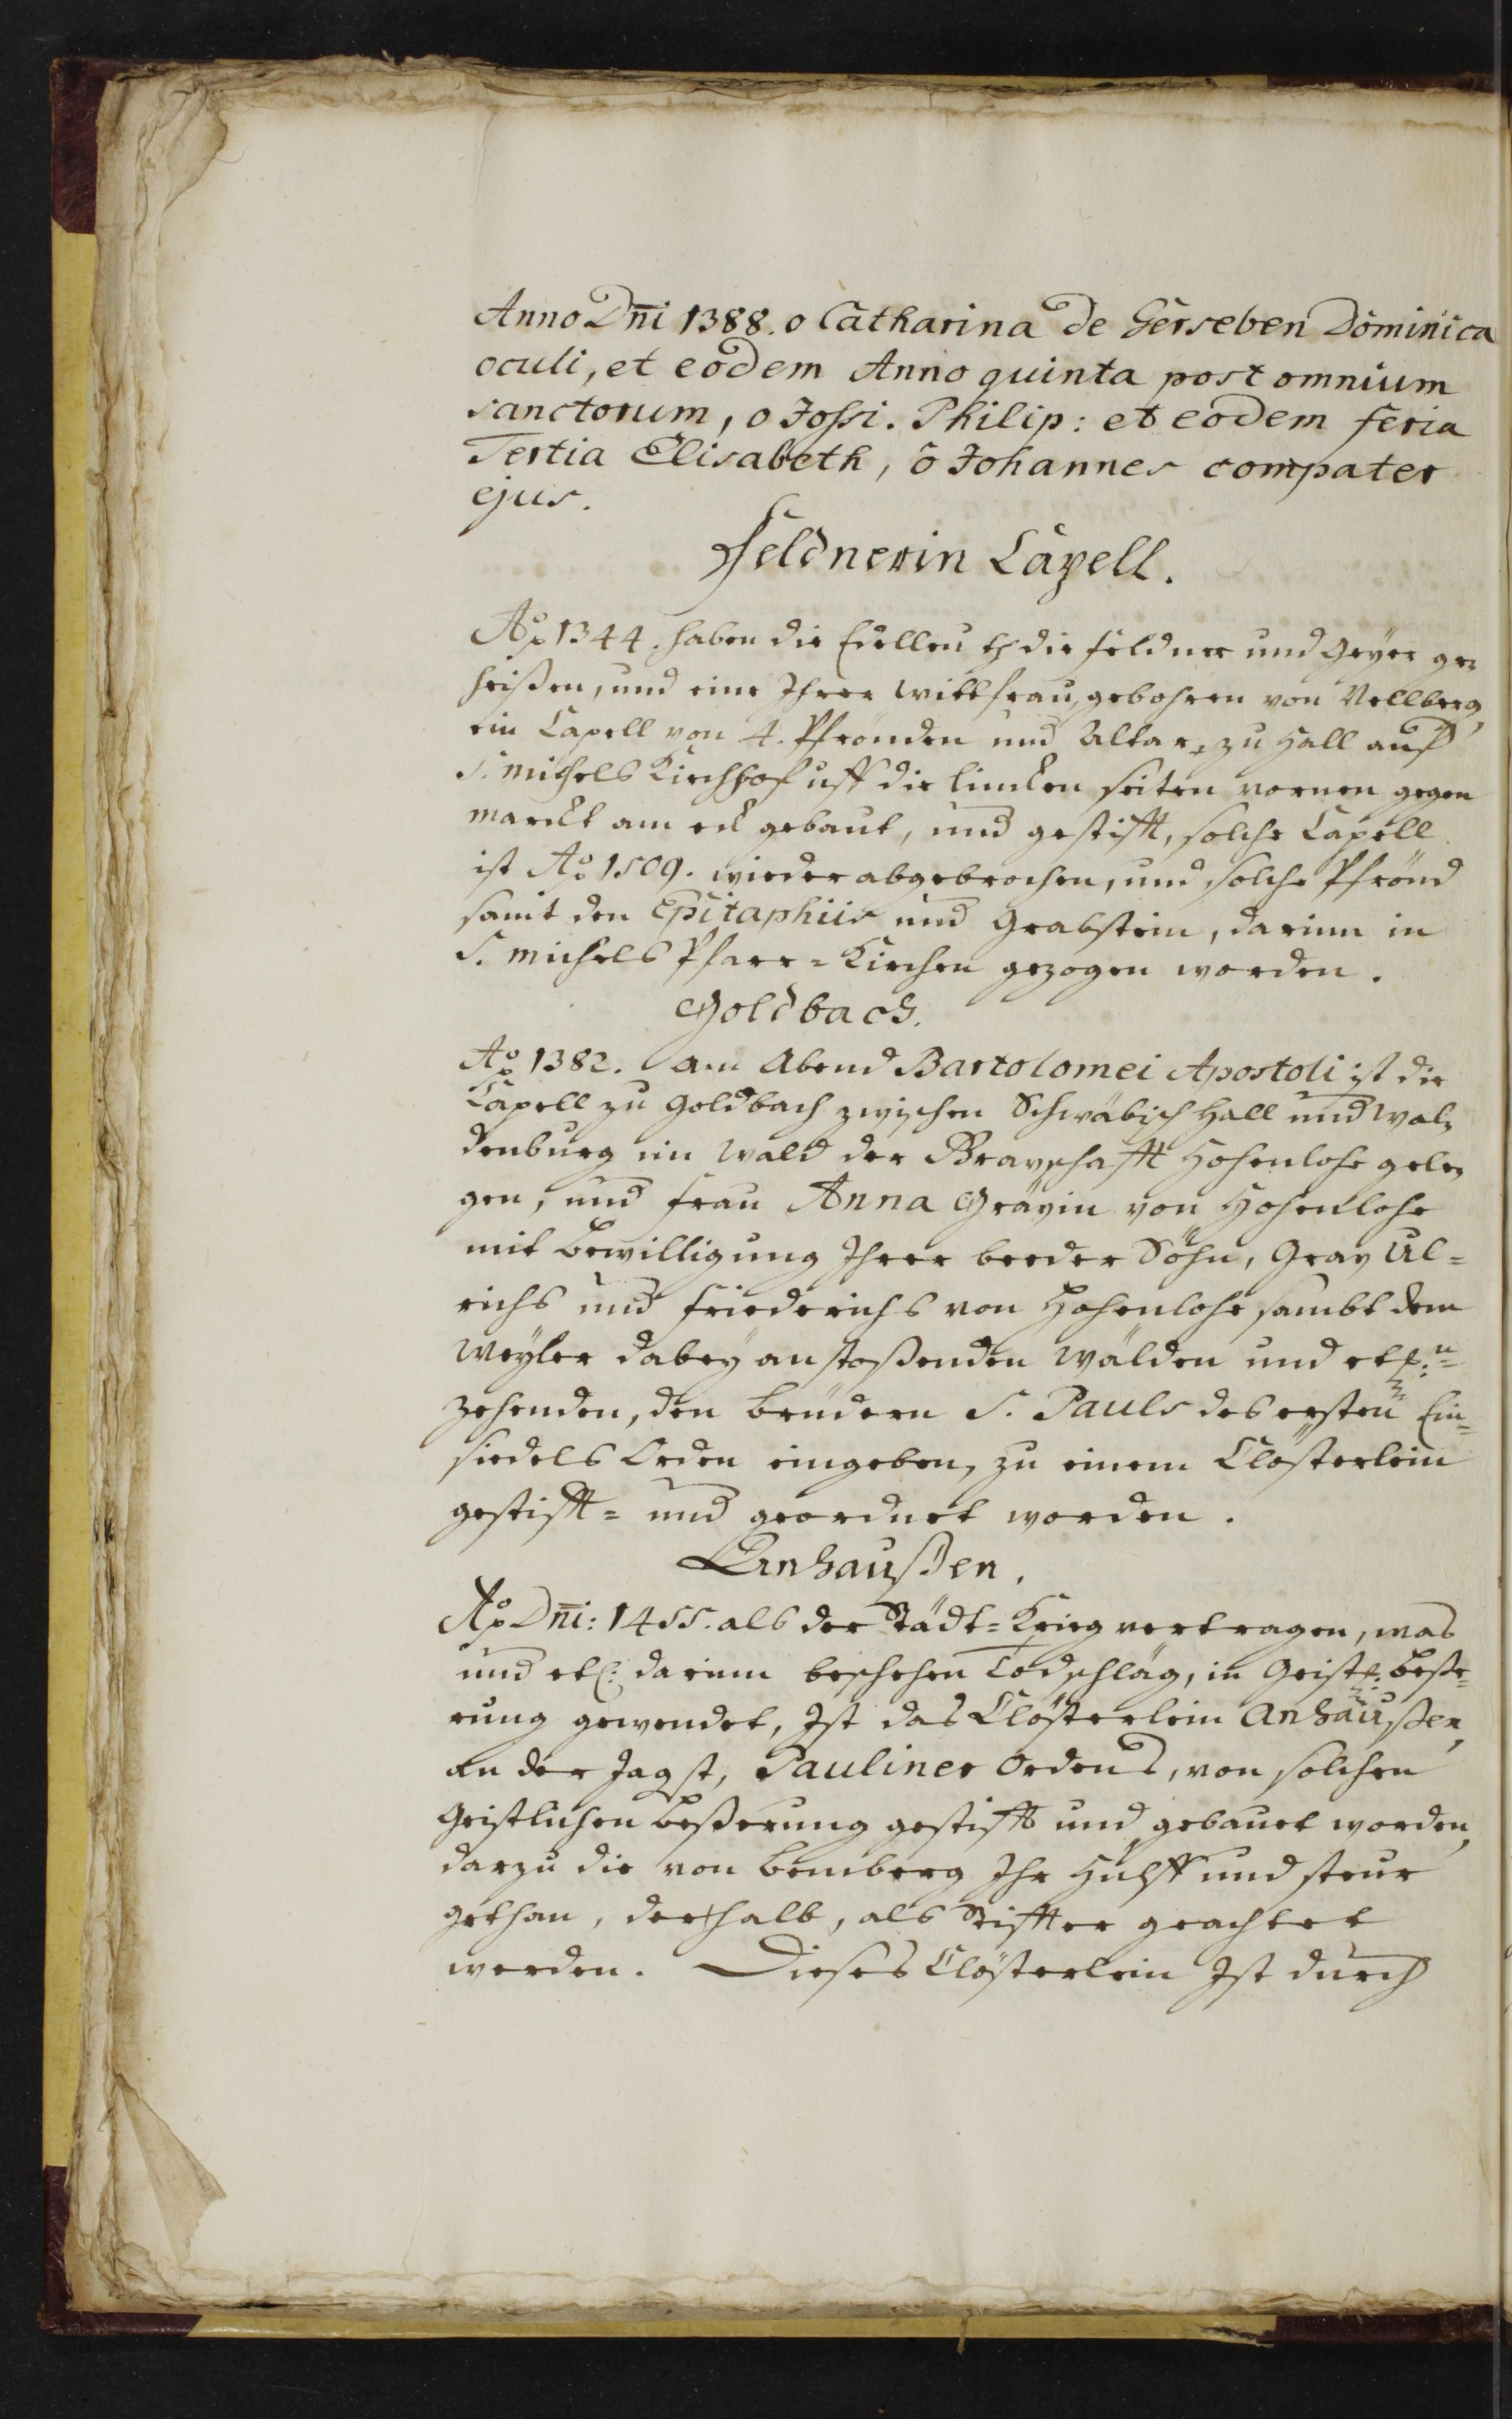 Anno Dni 1388. o Catharina de Gerseben Dominica
oculi, et eodem Anno quinta post omnium
sanctorum, o Jossi. Philip: et eodem feria
Tertia Elisabeth, o Johannes compater
ejus.
Feldnerin Capell.
Ao 1344. haben die Edelleuth die Feldner und Geÿer ge-
heißen, und eine Ihrer Wittfrau, gebohren von Vellberg,
ein Capell von 4. Pfrönden und Altar, zu Hall auf
S. Michels Kirchhof uff die lincken seiten vornen gegen
Marckt am eck gebaut, und gestifft, solche Capell
ist Ao 1509. wieder abgebrochen, und solche Pfrönd
samt den Epitaphiis und Grabstein, darinn in
S. Michels Pfarr-Kirchen gezogen worden.
Goldbach.
Ao 1382. am Abend Bartolomei Apostoli ist die
Capell zu Goldbach zwischen Schwäbisch Hall und Wal-
denburg im Wald der Gravschafft Hohenlohe gele-
gen, und Frau Anna Grävin von Hohenlohe
mit Bewilligung Ihrer beeder Söhn, Grav Ul=
richs und Friederichs von Hohenlohe sambt dem
Weÿler dabeÿ anstoßenden Wälden und etl:n
zehenden, den Brüdern S. Pauls des ersten Ein=
siedels Orden eingeben, zu einem Clösterlein
gestifft= und geordnet worden.
Anhaußen.
Ao Dni: 1455. als der Städt=Krieg vertragen, was
und etl: darinn beschehen Todschläg, in Geistl: Beße=
rung gewendet, Ist das Clösterlein Anhaußen,
an der Jagst, Pauliner Ordens, von solchen
Geistlichen Beßerung gestifft und gebauet worden,
darzu die von Bemberg Ihr Hülff und steur
gethan, derhalb, als Stiffter geachtet
werden. Dieses Clösterlein Ist durch